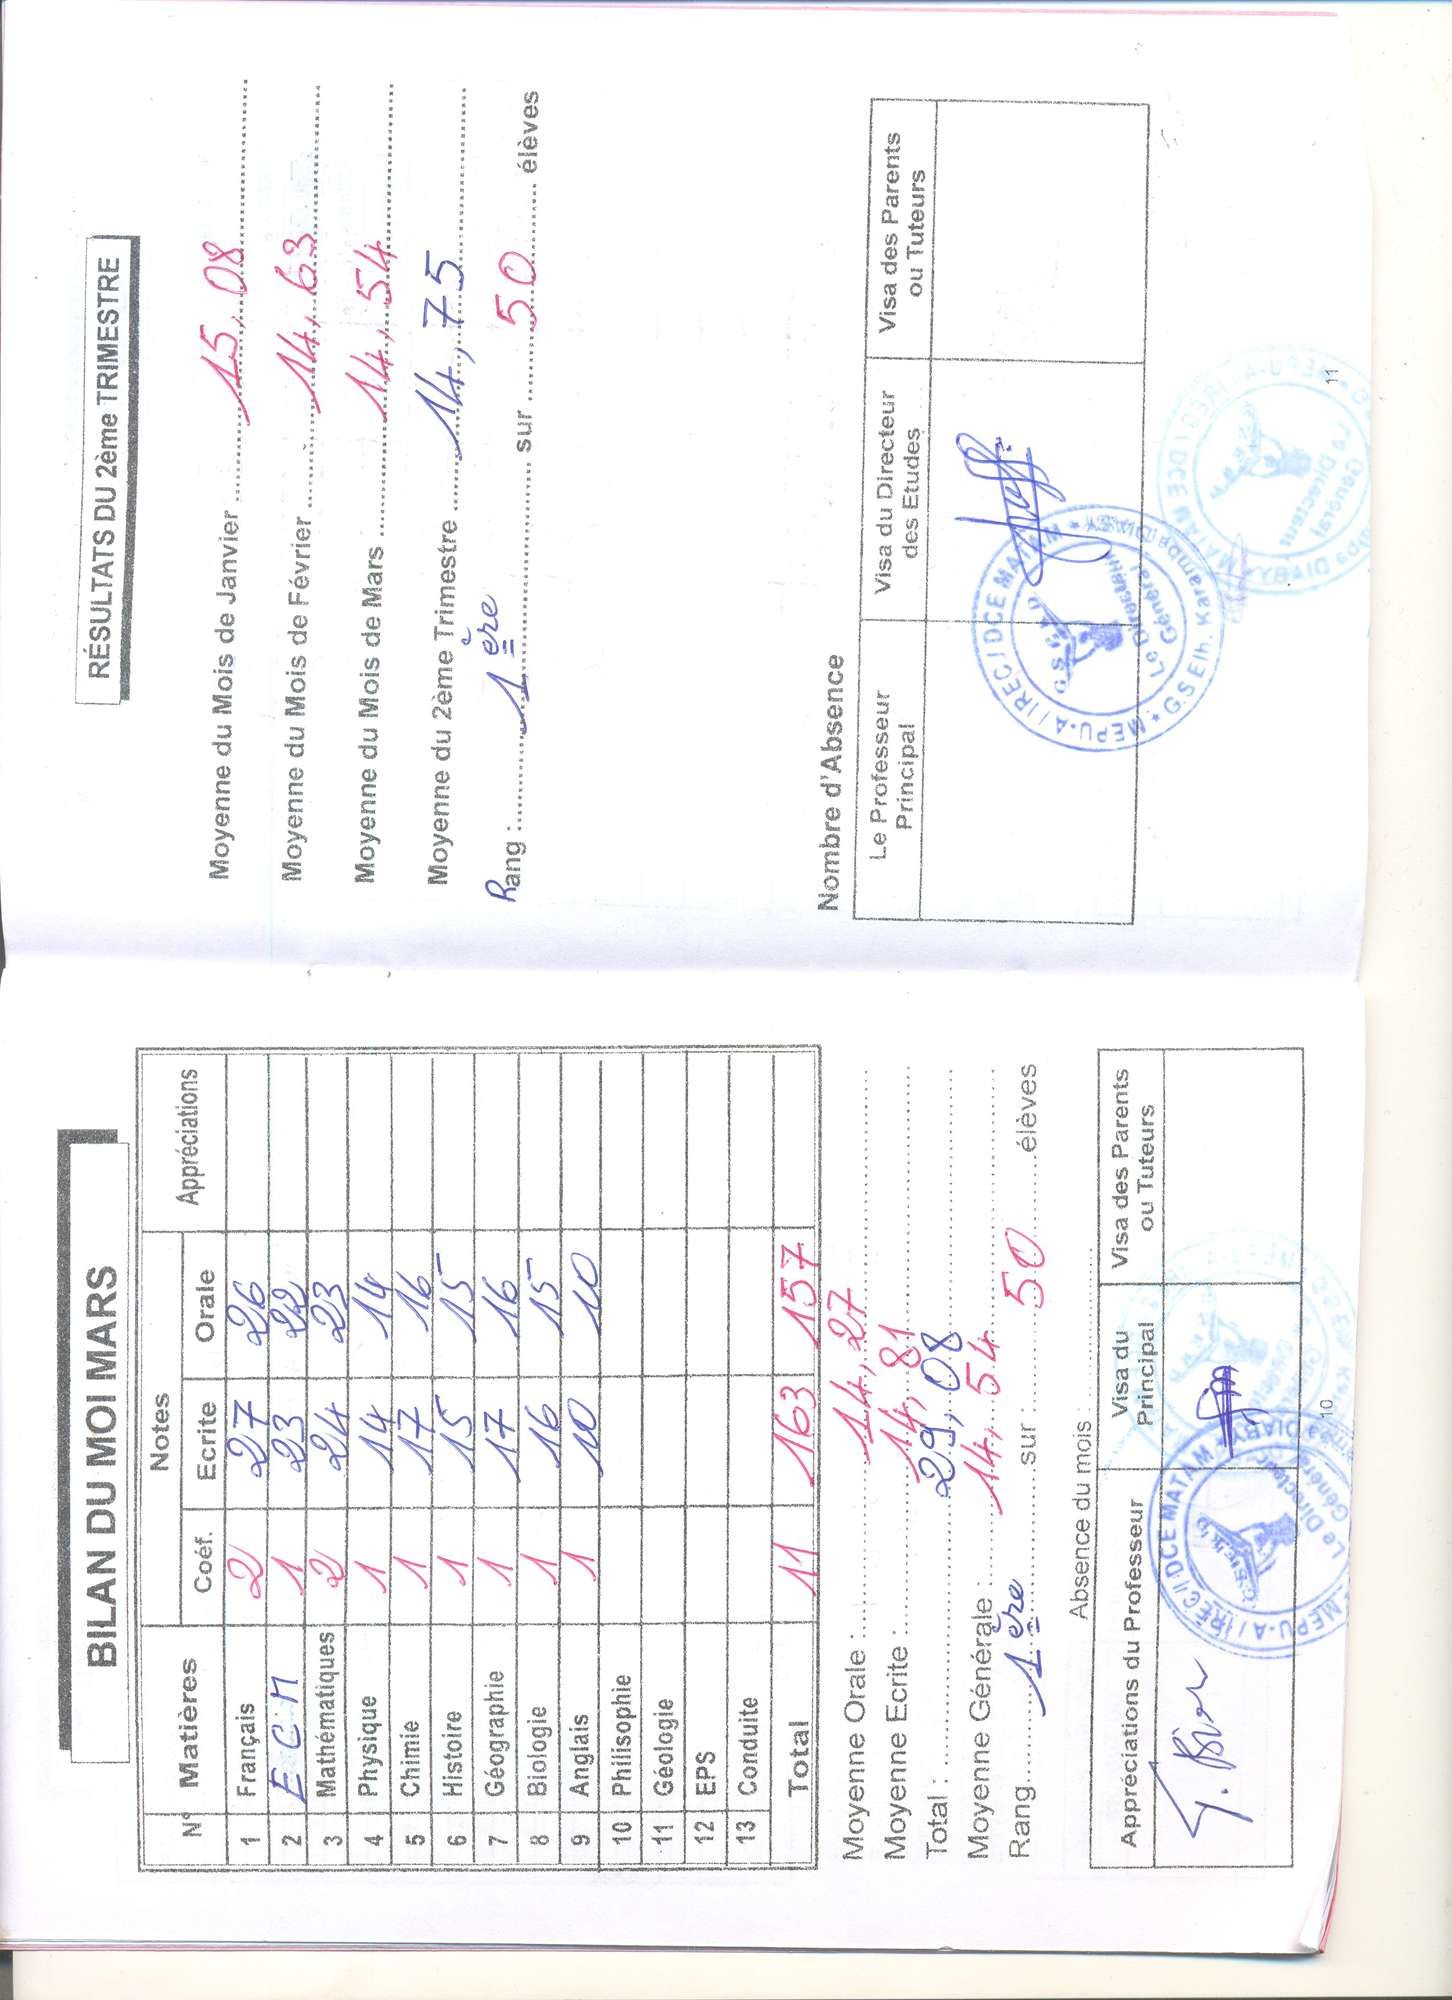 BILAN DU MOI MARS
N° Matières Notes Appréciations
Coéf. Ecrite Orale
1 Français 2 27 26
2 ECM 1 23 22
3 Mathématiques 2 24 23
4 Physique 1 14 14
5 Chimie 1 17 16
6 Histoire 1 15 15
7 Géographie 1 17 16
8 Biologie 1 16 15
9 Anglais 1 10 10
10 Philisophie
11 Géologie
12 EPS
13 Conduite
Total 11 163 157
Moyenne Orale : 14,27
Moyenne Ecrite : 14,81
Total : 29,08
Moyenne Générale : 14,54
Rang 1ère sur 50 élèves
Absence du mois :
Appréciations du Professeur Visa du Principal Visa des Parents ou Tuteurs
T. Bien
MEPU-A / IREC / DCE MATAM
Le Directeur Général
10
RÉSULTATS DU 2ème TRIMESTRE
Moyenne du Mois de Janvier 15,08
Moyenne du Mois de Février 14,63
Moyenne du Mois de Mars 14,54
Moyenne du 2ème Trimestre 14,75
Rang : 1ère sur 50 élèves
Nombre d'Absence
Le Professeur Principal Visa du Directeur des Etudes Visa des Parents ou Tuteurs
MEPU-A / IREC / DCE MATAM * G.S Elh. Karampa DIABY *
Le Directeur Général
11